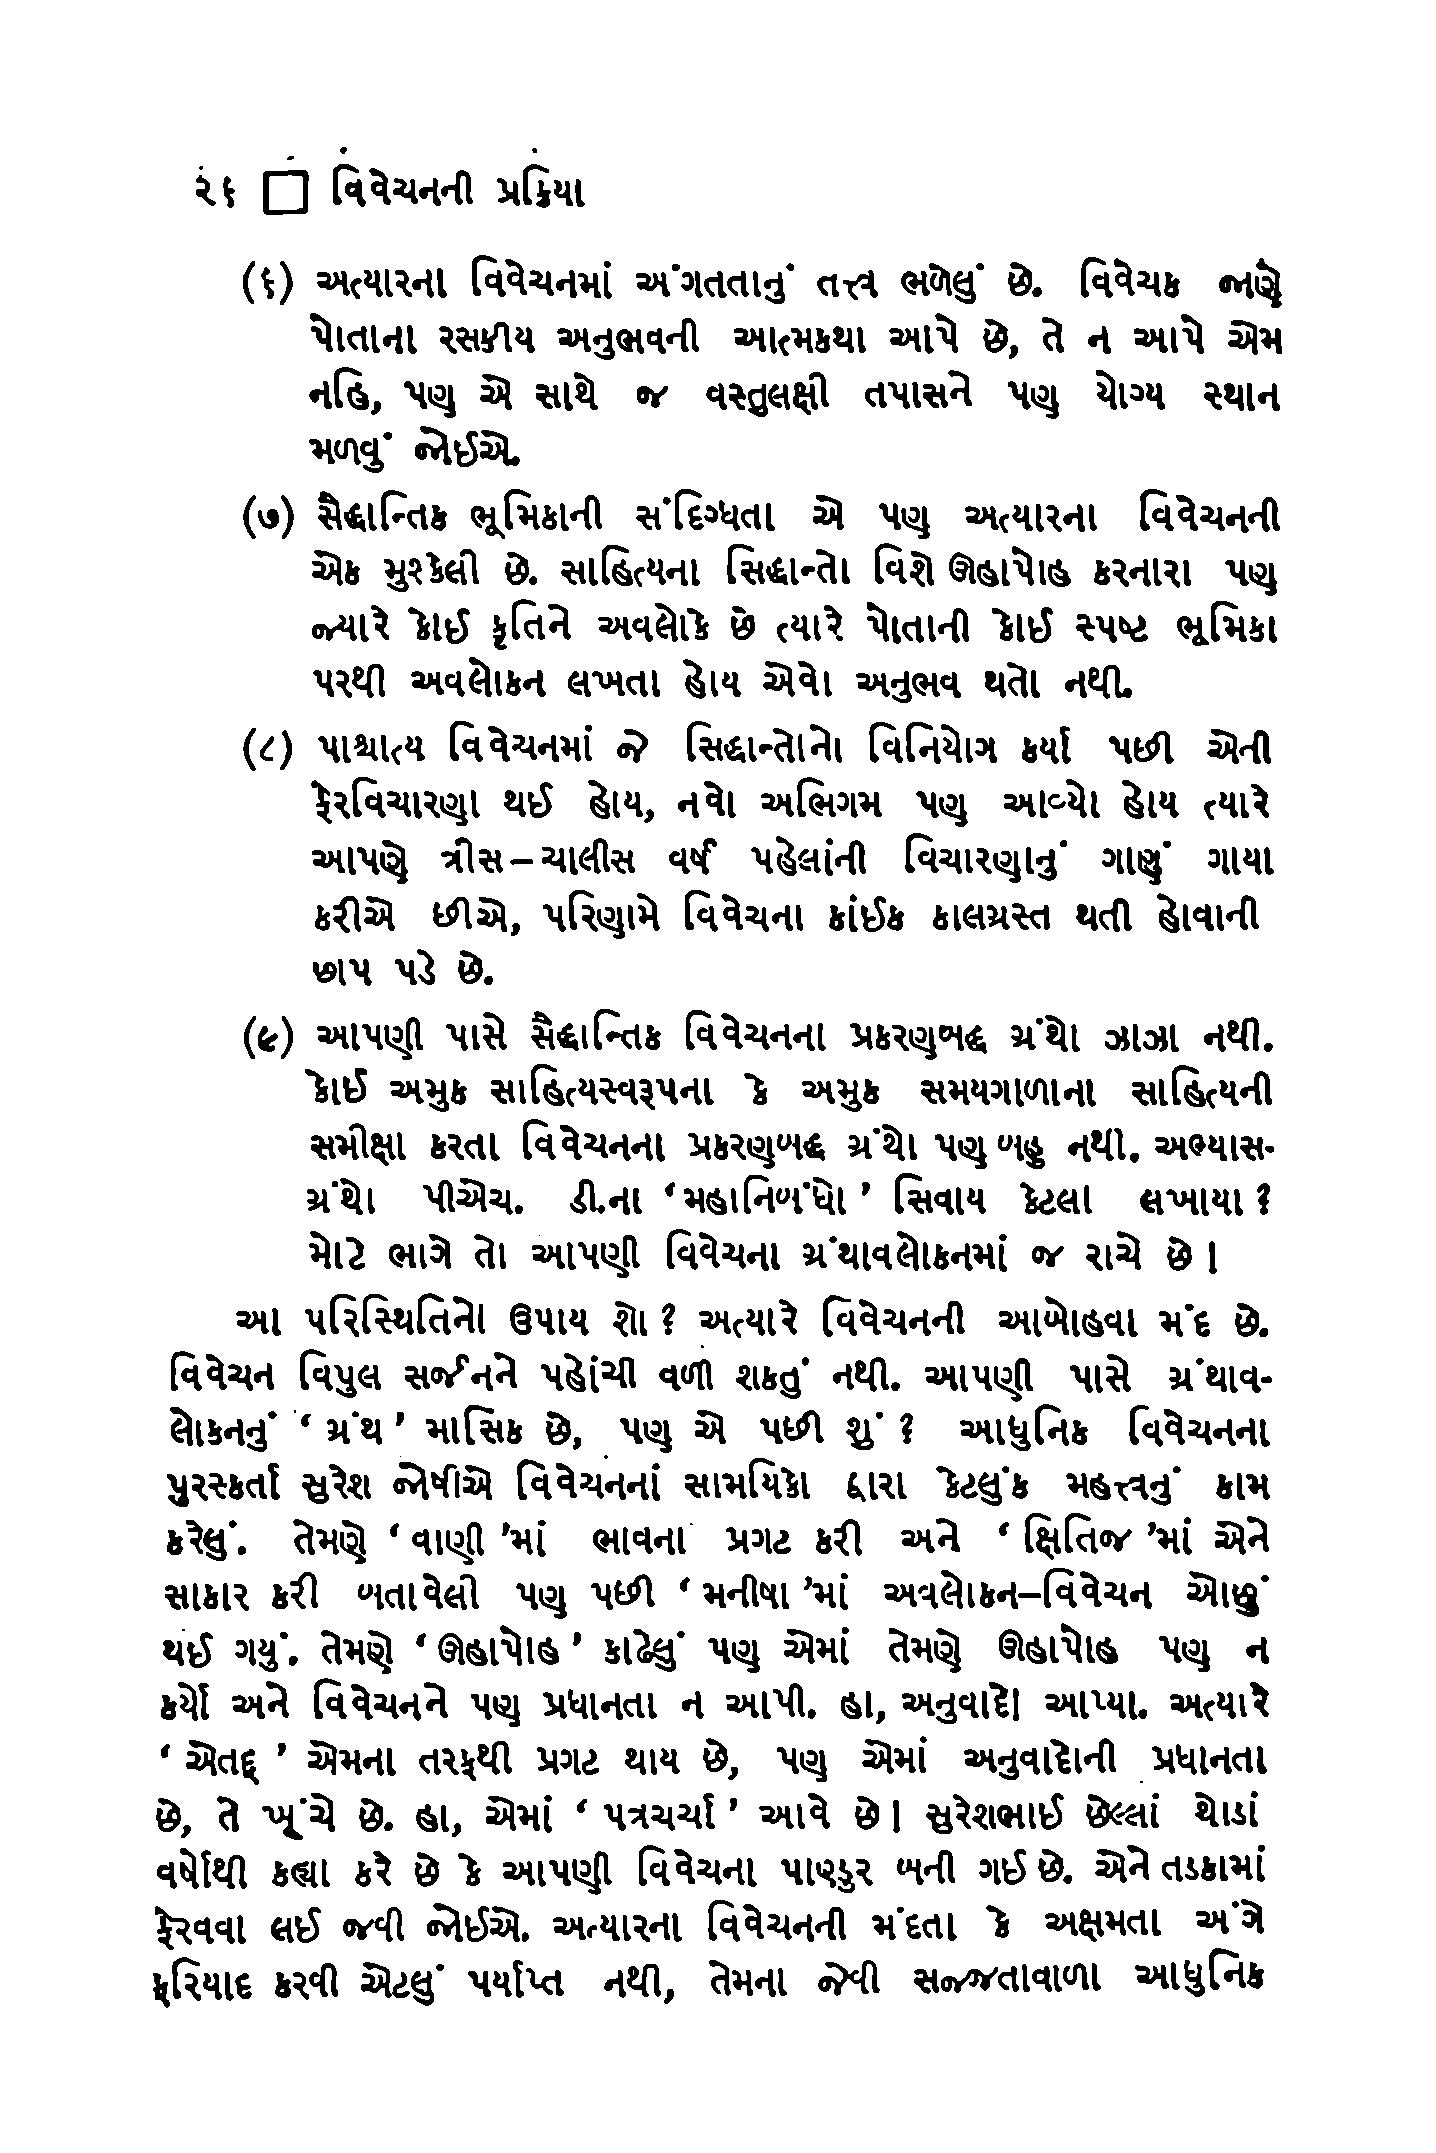 ૨૬ □ વિવેચનની પ્રક્રિયા
(૬) અત્યારના વિવેચનમાં અંગતતાનું તત્ત્વ ભળેલું છે. વિવેચક જાણે
પોતાના રસકીય અનુભવની આત્મકથા આપે છે, તે ન આપે એમ
નહિ, પણ એ સાથે જ વસ્તુલક્ષી તપાસને પણ યોગ્ય સ્થાન
મળવું જોઈએ.
(૭) સૈદ્ધાન્તિક ભૂમિકાની સંદિગ્ધતા એ પણ અત્યારના વિવેચનની
એક મુશ્કેલી છે. સાહિત્યના સિદ્ધાન્તો વિશે ઊહાપોહ કરનારા પણ
જ્યારે કોઈ કૃતિને અવલોકે છે ત્યારે પોતાની કોઈ સ્પષ્ટ ભૂમિકા
પરથી અવલોકન લખતા હોય એવો અનુભવ થતો નથી.
(૮) પાશ્ચાત્ય વિવેચનમાં જે સિદ્ધાન્તોનો વિનિયોગ કર્યા પછી એની
ફેરવિચારણા થઈ હોય, નવો અભિગમ પણ આવ્યો હોય ત્યારે
આપણે ત્રીસ–ચાલીસ વર્ષ પહેલાંની વિચારણાનું ગાણું ગાયા
કરીએ છીએ, પરિણામે વિવેચના કાંઈક કાલગ્રસ્ત થતી હોવાની
છાપ પડે છે.
(૯) આપણી પાસે સૈદ્ધાન્તિક વિવેચનના પ્રકરણબદ્ધ ગ્રંથો ઝાઝા નથી.
કોઈ અમુક સાહિત્યસ્વરૂપના કે અમુક સમયગાળાના સાહિત્યની
સમીક્ષા કરતા વિવેચનના પ્રકરણબદ્ધ ગ્રંથો પણ બહુ નથી. અભ્યાસ-
ગ્રંથો પીએચ. ડી.ના ‘મહાનિબંધો’ સિવાય કેટલા લખાયા ?
મોટે ભાગે તો આપણી વિવેચના ગ્રંથાવલોકનમાં જ રાચે છે !
આ પરિસ્થિતિનો ઉપાય શો ? અત્યારે વિવેચનની આબોહવા મંદ છે.
વિવેચન વિપુલ સર્જનને પહોંચી વળી શકતું નથી. આપણી પાસે ગ્રંથાવ-
લોકનનું ‘ગ્રંથ’ માસિક છે, પણ એ પછી શું ? આધુનિક વિવેચનના
પુરસ્કર્તા સુરેશ જોષીએ વિવેચનનાં સામયિકો દ્વારા કેટલુંક મહત્ત્વનું કામ
કરેલું. તેમણે ‘વાણી’માં ભાવના પ્રગટ કરી અને ‘ક્ષિતિજ’માં એને
સાકાર કરી બતાવેલી પણ પછી ‘મનીષા’માં અવલોકન–વિવેચન ઓછું
થઈ ગયું. તેમણે ‘ઊહાપોહ’ કાઢેલું પણ એમાં તેમણે ઊહાપોહ પણ ન
કર્યો અને વિવેચનને પણ પ્રધાનતા ન આપી. હા, અનુવાદો આપ્યા. અત્યારે
‘એતદ્’ એમના તરફથી પ્રગટ થાય છે, પણ એમાં અનુવાદોની પ્રધાનતા
છે, તે ખૂંચે છે. હા, એમાં ‘પત્રચર્ચા’ આવે છે ! સુરેશભાઈ છેલ્લાં થોડાં
વર્ષોથી કહ્યા કરે છે કે આપણી વિવેચના પાણ્ડુર બની ગઈ છે. એને તડકામાં
ફેરવવા લઈ જવી જોઈએ. અત્યારના વિવેચનની મંદતા કે અક્ષમતા અંગે
ફરિયાદ કરવી એટલું પર્યાપ્ત નથી, તેમના જેવી સજ્જતાવાળા આધુનિક